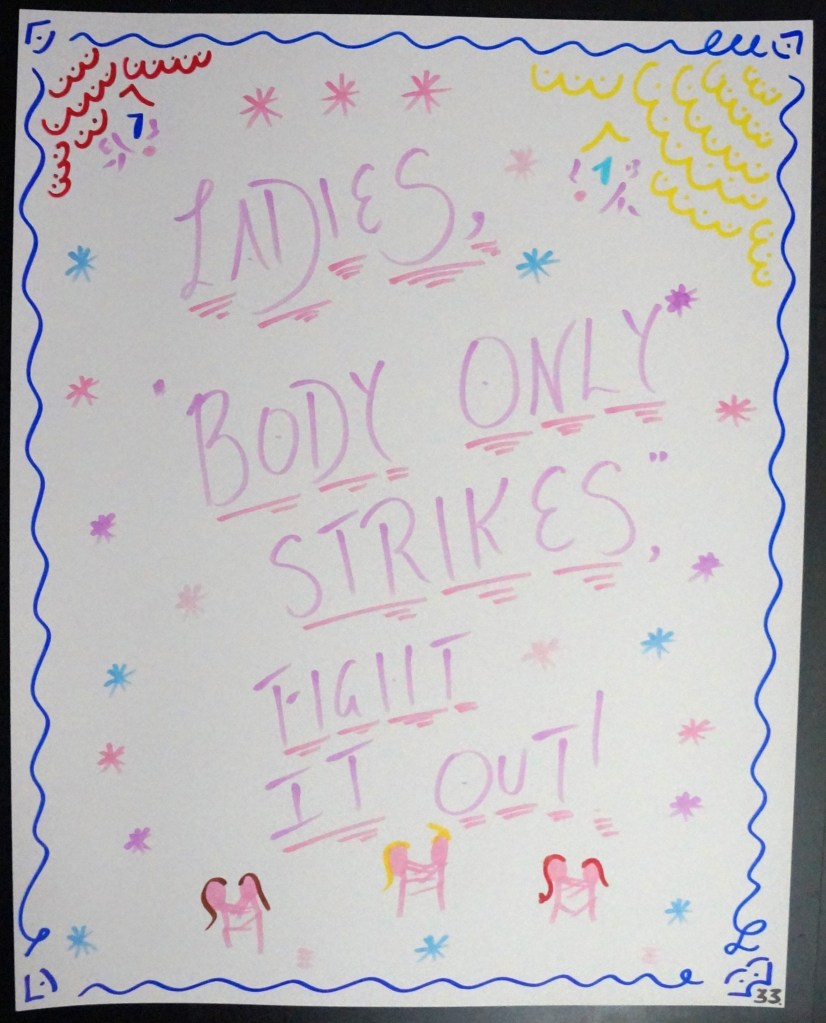 1
1
LADIES,
"BODY ONLY
STRIKES,"
FIGHT
IT OUT!
33